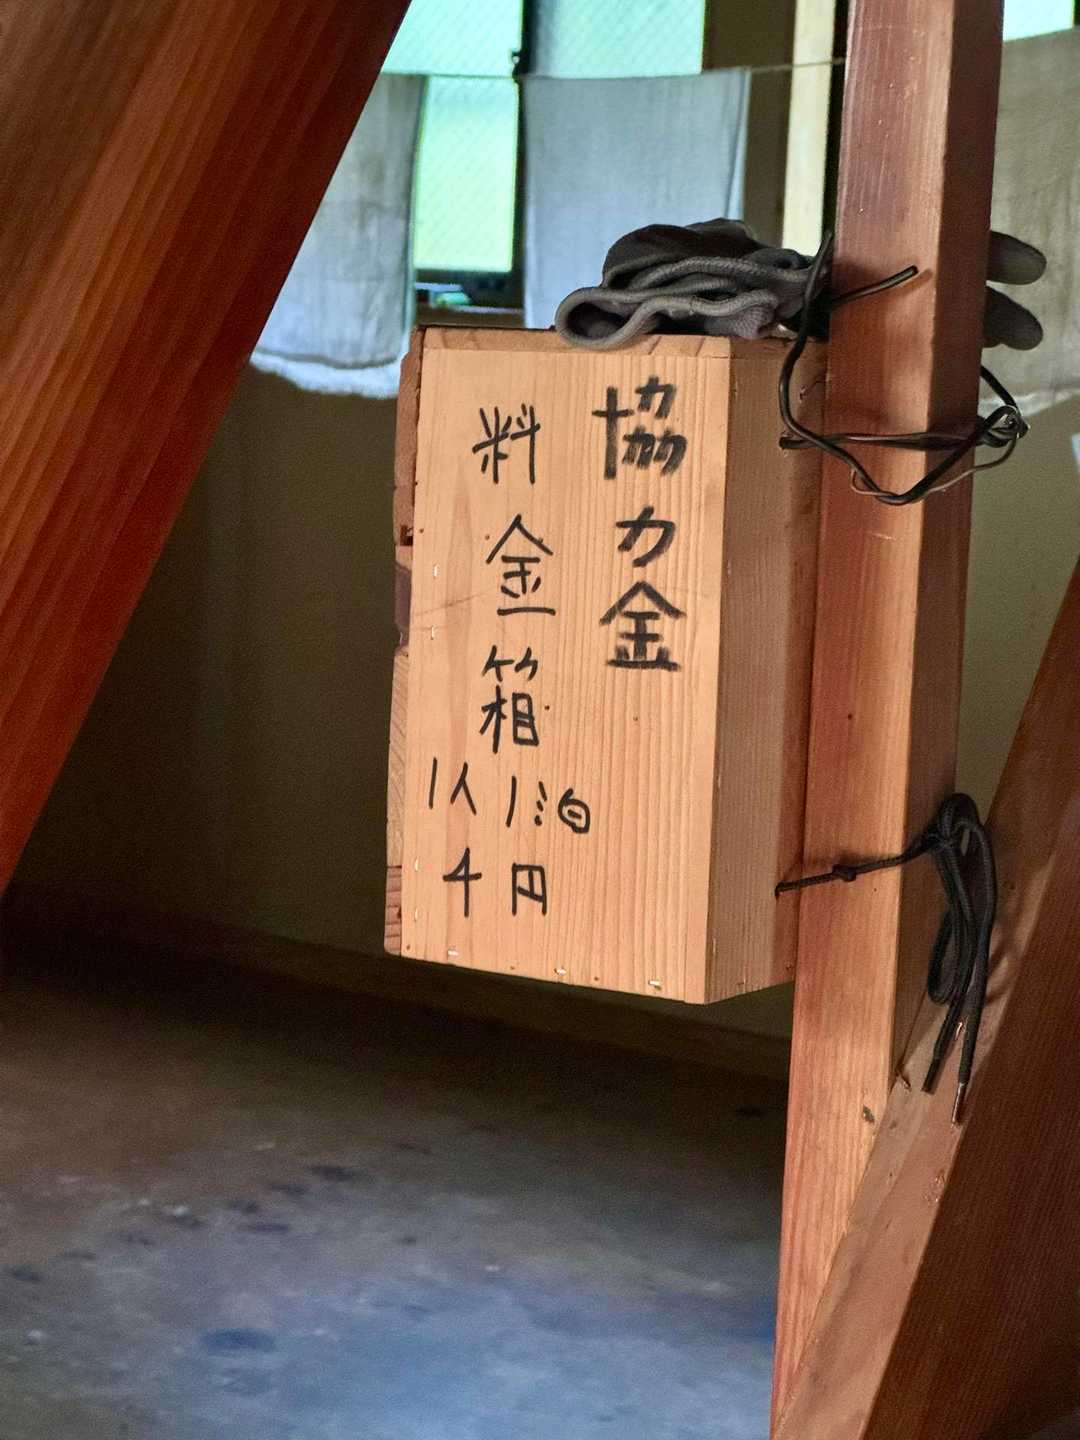 協力金
料金箱
1人1泊
千円